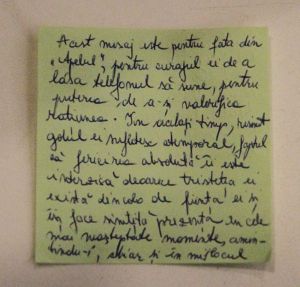 Acest mesaj este pentru fata din
"Apelul", pentru curajul ei de a
lăsa telefonul să sune, pentru
puterea de a-și valorifica
rațiunea. În același timp, resimt
golul ei sufletesc atemporal, faptul
că fericirea absolută îi este
interzisă deoarece tristețea ei
există dincolo de ființa ei și
își face simțită prezența în cele
mai neașteptate momente, amin-
tindu-i, chiar și în mijlocul